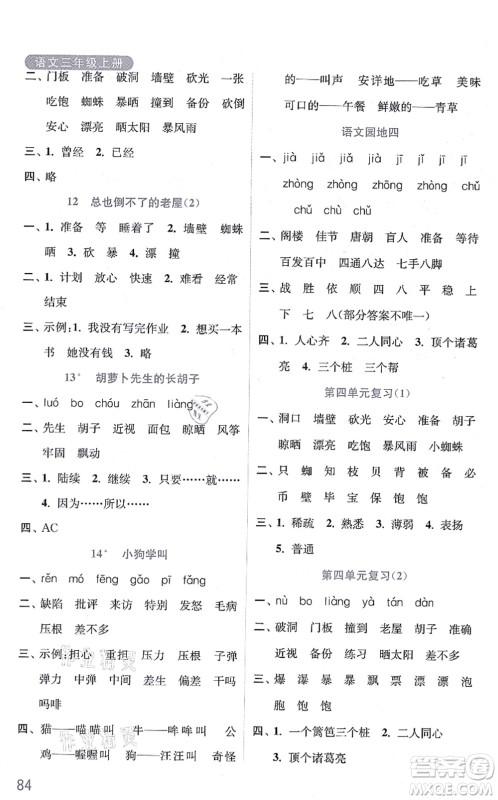 语文三年级上册
二、门板 准备 破洞 墙壁 砍光 一张
吃饱 蜘蛛 暴晒 撞到 备份 砍倒
安心 漂亮 晒太阳 暴风雨
三、1. 曾经 2. 已经
四、略
12 总也倒不了的老屋(2)
一、1. 准备 等 睡着了 墙壁 蜘蛛
晒 3. 砍 暴 4. 漂 撞
二、1. 计划 放心 快速 2. 难看 经常
结束
三、示例：1. 我没有写完作业 2. 我想买一本
书 她没有钱 3. 略
13* 胡萝卜先生的长胡子
一、luó bo cháu zhān liàng
二、先生 胡子 近视 面前 晾晒 风筝
牢固 飘动
三、1. 陆续 2. 继续 3. 只要……就……
4. 因为……所以……
四、AC
14* 小狗学叫
一、rěn mó fěng gǎo pī fǎng
二、缺陷 批评 来访 特别 发怒 毛病
压根 差不多
三、示例：担心 重担 压力 压根 干草
干杯 讨厌 厌恶 差生 偏差 干吗
吗啡
四、猫——喵喵叫 牛——哞哞叫 公
鸡——喔喔叫 狗——汪汪叫 奇怪
的——叫声 安详地——吃草 美味
可口的——午餐 鲜嫩的——青草
语文园地四
一、jià jià jiā jī jǐ jǐ
zhòng zhòng chóng zhòng
chǔ chǔ chù
二、阁楼 佳节 唐朝 盲人 准备 等待
百发百中 四通八达 七手八脚
三、战 胜 依 顺 四 平 稳 上
下 七 八(部分答案不唯一)
四、1. 人心齐 2. 二人同心 3. 顶个诸葛
亮 4. 三个桩 5. 三个帮
第四单元复习(1)
一、洞口 墙壁 砍光 安心 门板 房子
晾晒 漂亮 吃饱 撞倒 小蜘蛛
二、只 蜘 知 枝 贝 背 被 备 必
币 壁 毕 宝 保 饱 饱
三、1. 稀疏 2. 熟悉 3. 薄弱 4. 表扬
5. 普通
第四单元复习(2)
一、nù bo liàng yà tán dàn
二、破洞 门板 撞到 老屋 胡子 卜卦
近视 晒太阳 暴风雨
三、泡 饱 包 刨 飘 票 漂 漂 澎
膨
四、1. 一个篱笆三个桩 2. 二人同心
3. 顶个诸葛亮
84
作业精灵
答案圈
MXQE.COM